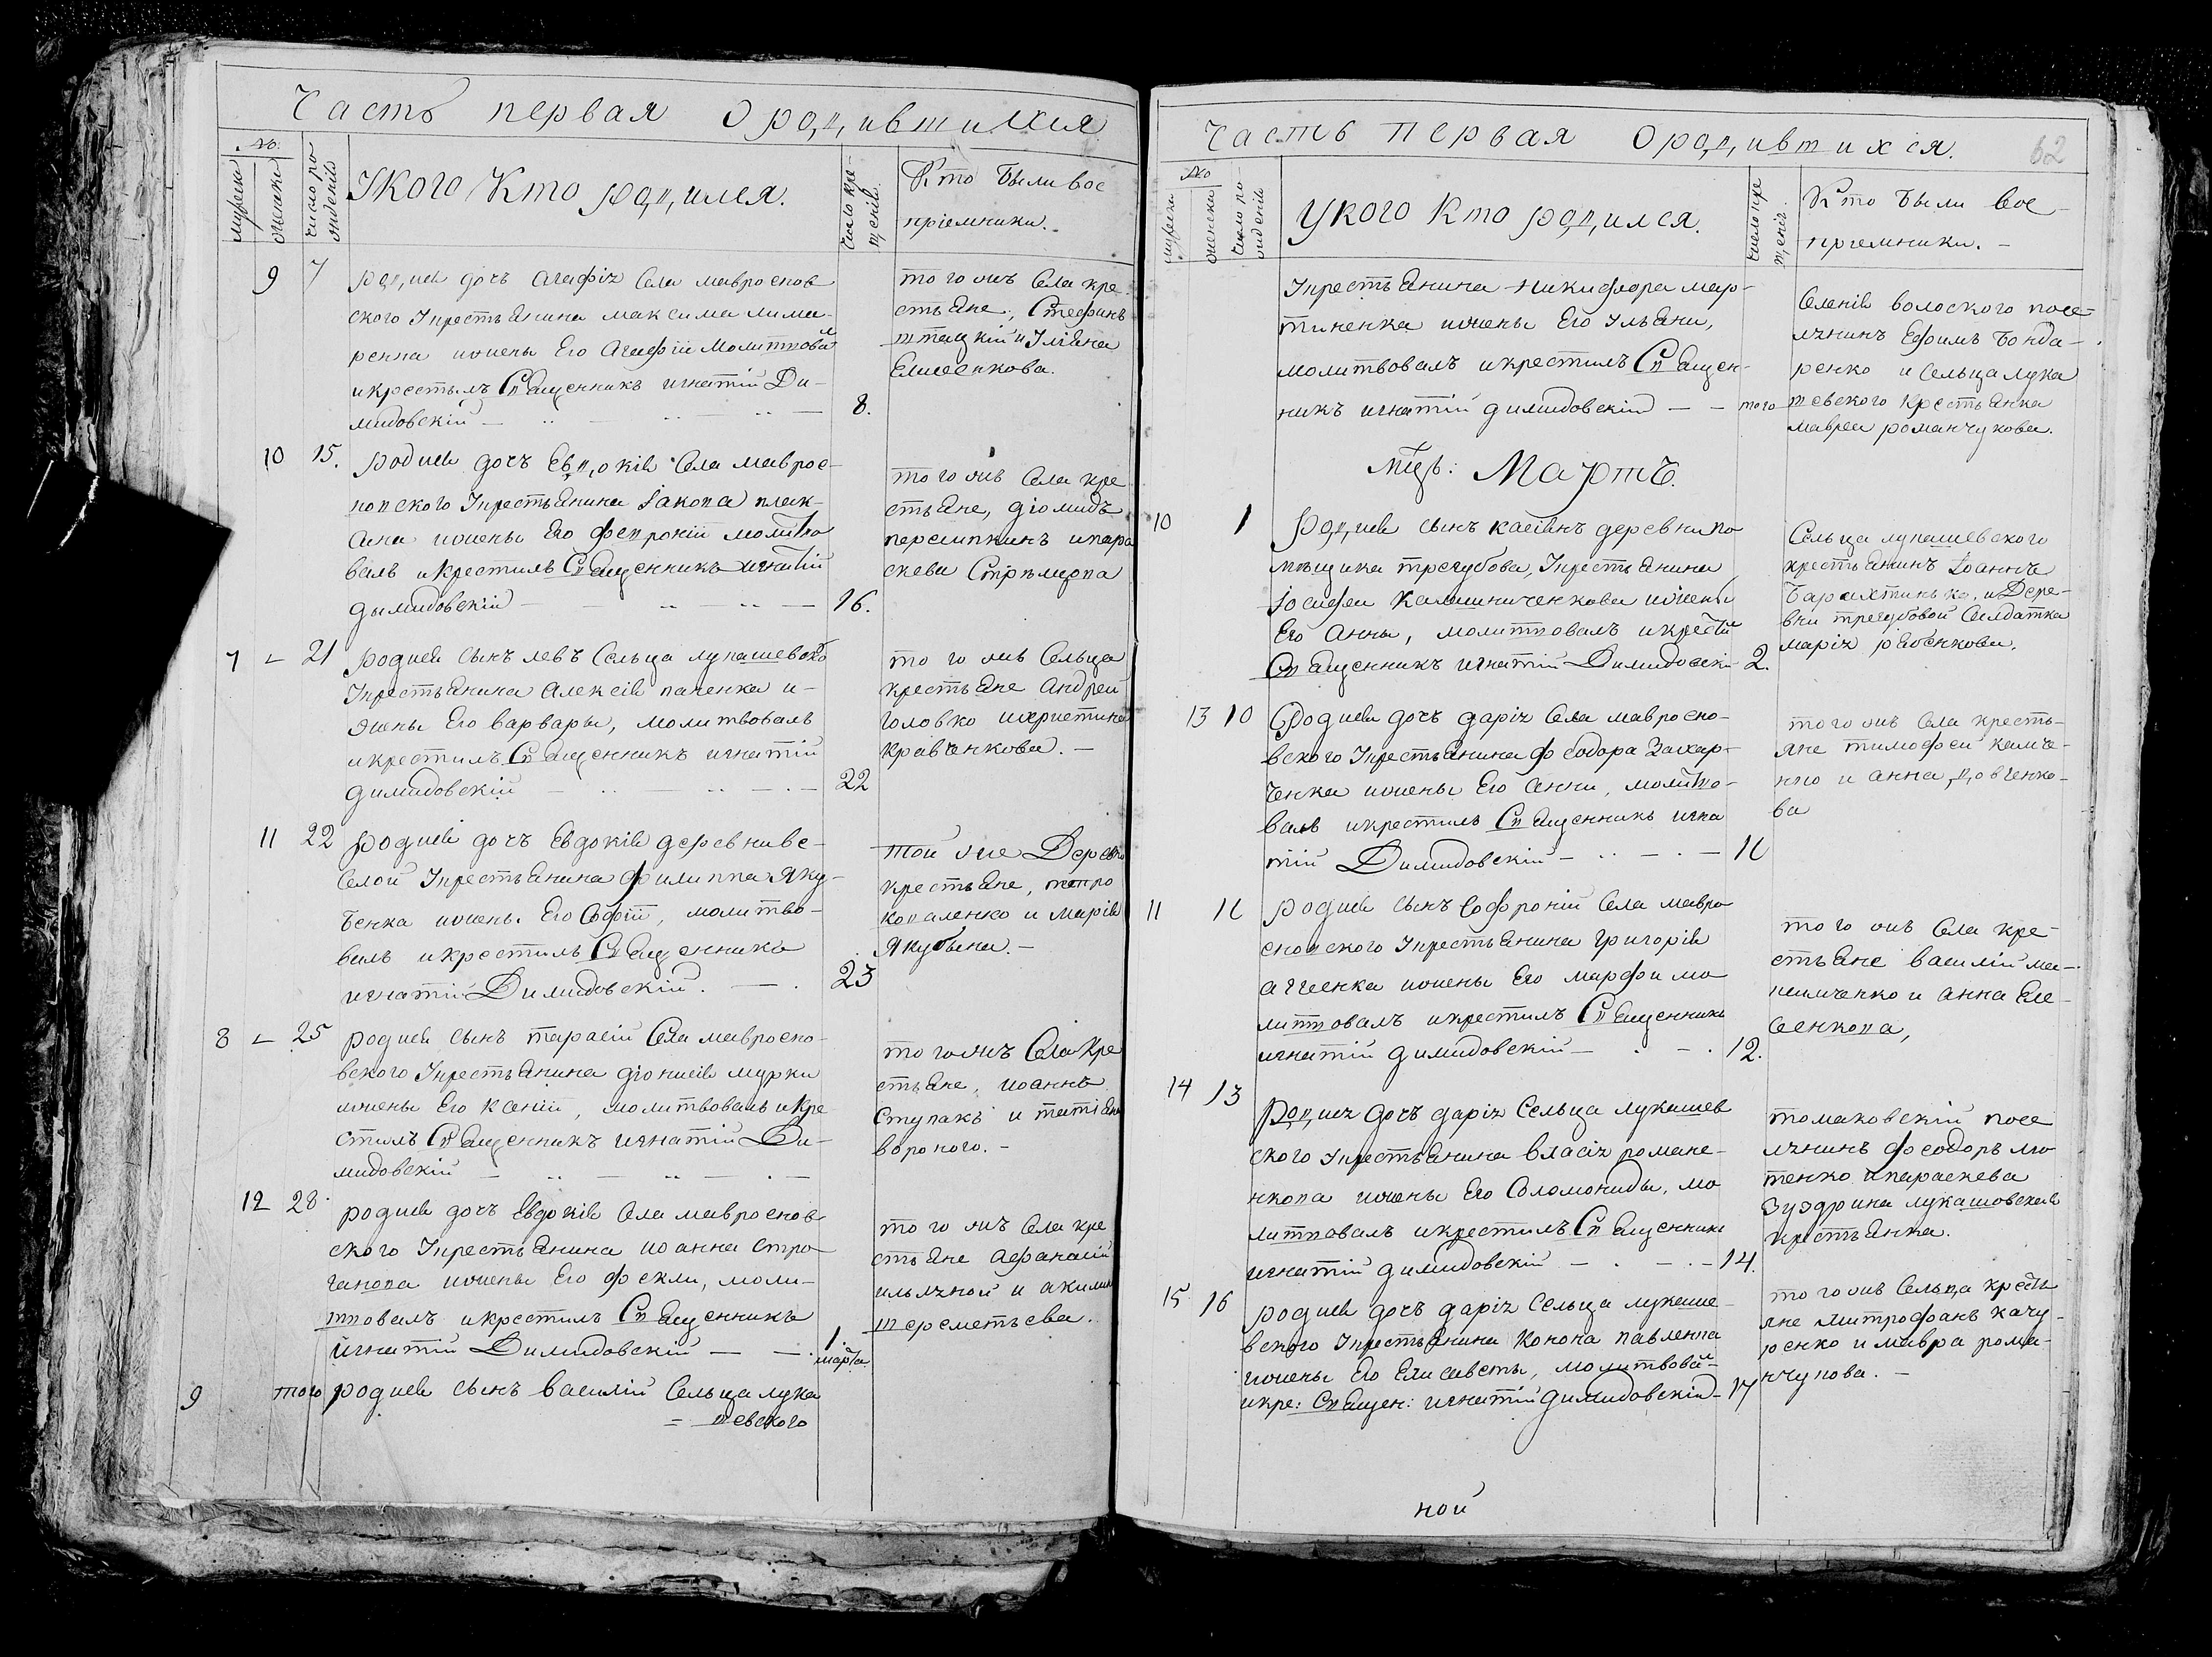 Часть первая О родившихся
№.
мужеска
женска
число ро
жденія
У кого Кто родился.
Число кре-
щенія
Кто были вос
пріемники.
9 7 родися дочь Агафія Села мавроснов
ского крестьянина максима лима-
ренка и жены Его Агафіи Молитвовалъ
и крестилъ Священникъ игнатій Ди-
мидовскій 8.
того жъ Села кре
стьяне, Стефанъ
и Уліана
Елисеикова.
10 15. родися дочь Евдокія Села маврос-
новского крестьянина Іакова плак-
сина и жены Его Февронии молитво
валъ и крестилъ Священникъ игнатій
дымидовскій 16.
того жъ Села кре
стьяне, діомидъ
пересипкинъ и пара
скева
7 21 родися сынъ левъ Сельца лукашевско
крестьянина Алексія паченка и
жены Его варвары, молитвовалъ
и крестилъ Священникъ игнатій
димидовскій 22
того жъ Сельца
крестьяне Андрей
головко и христина
кравченкова. -
11 22 родися дочь Евдокія деревни ве-
селой крестьянина филиппа Яку-
бенка и жены Его Софіи, молитво-
валъ и крестилъ Священникъ
игнатій Димидовскій. 23
той же Деревни
крестьяне, петро
коваленко и марія
Якубына. -
8 25 родися сынъ тарасій Села мавросно-
вского крестьянина діонисія мурки
и жены Его Ксеніи, молитвовалъ и кре
стилъ Священникъ игнатій Ди-
мидовскій
того жъ Села кре
стьяне, иоаннъ
Ступакъ и татіана
вороного. -
12 28. родися дочь Евдокія Села мавроснов
ского крестьянина иоанна стро
ганова и жены Его феклы, моли-
твовалъ и крестилъ Священникъ
игнатій Димидовскій 1. марта
того жъ Села кре
стьяне афанасій
ильиной и акилина
шереметьева.
9 того родися сынъ василій Сельца лука
= шевского
Часть первая О родившихся. 62
№
мужеска
женска
число ро-
жденія
У кого Кто родился.
Число кре
щенія.
Кто были вос-
пріемники. -
крестьянина Никифора мар-
тиненка и жены Его Ульяни,
молитвовалъ и крестилъ Священ-
никъ игнатій димидовскій - - того
Селенія волоского посе-
лянинъ Ефимъ бонда-
ренко и Сельца лука
шевского крестьянка
мавра романчукова.
мцъ: Мартъ.
10 1 Родися сынъ касіянъ деревни по
мѣщика трегубова, крестьянина
Іосифа Калиниченкова и жены
Его Анны, молитвовалъ и крестил
Священникъ игнатій Димидовскі 2.
Сельца лукашевского
крестьянинъ Іоаннъ
и Дере-
вни трегубовой Салдатка
марія рябенкова.
13 10 Родися дочь дарія Села мавросно-
вского крестьянина феодора Захар-
ченка и жены Его Анни, молитво-
валъ и крестилъ Священникъ игна
тій Димидовскій 11
того жъ Села кресть-
яне тимофей
и анна довченко-
ва
11 11 родися сынъ Софроній Села мавро
сновского крестьянина григорія
аггеенка и жены Его марфи мо
литвовалъ и крестилъ Священникъ
игнатій димидовскій 12.
того жъ Села кре-
стьяне василій ма-
и анна Еле-
сенкова,
14 13 Родися дочь дарія Сельца лукашев
ского крестьянина власія романе-
нкова и жены Его Соломониды, мо
литвовалъ и крестилъ Священникъ
игнатій димидовскій 14.
томаковскій посе
лянинъ феодоръ лю
тенко и параскева
Зуздрина лукашовская
крестьянка.
15 16 родися дочь дарія Сельца лукаше-
вского крестьянина Конона павленка
и жены Его Елисаветы, молитвовал
и кре: Священ: игнатій димидовскій 17
того жъ Сельца кресть
яне митрофанъ качу-
ренко и мавра рома-
нчукова. -
ной